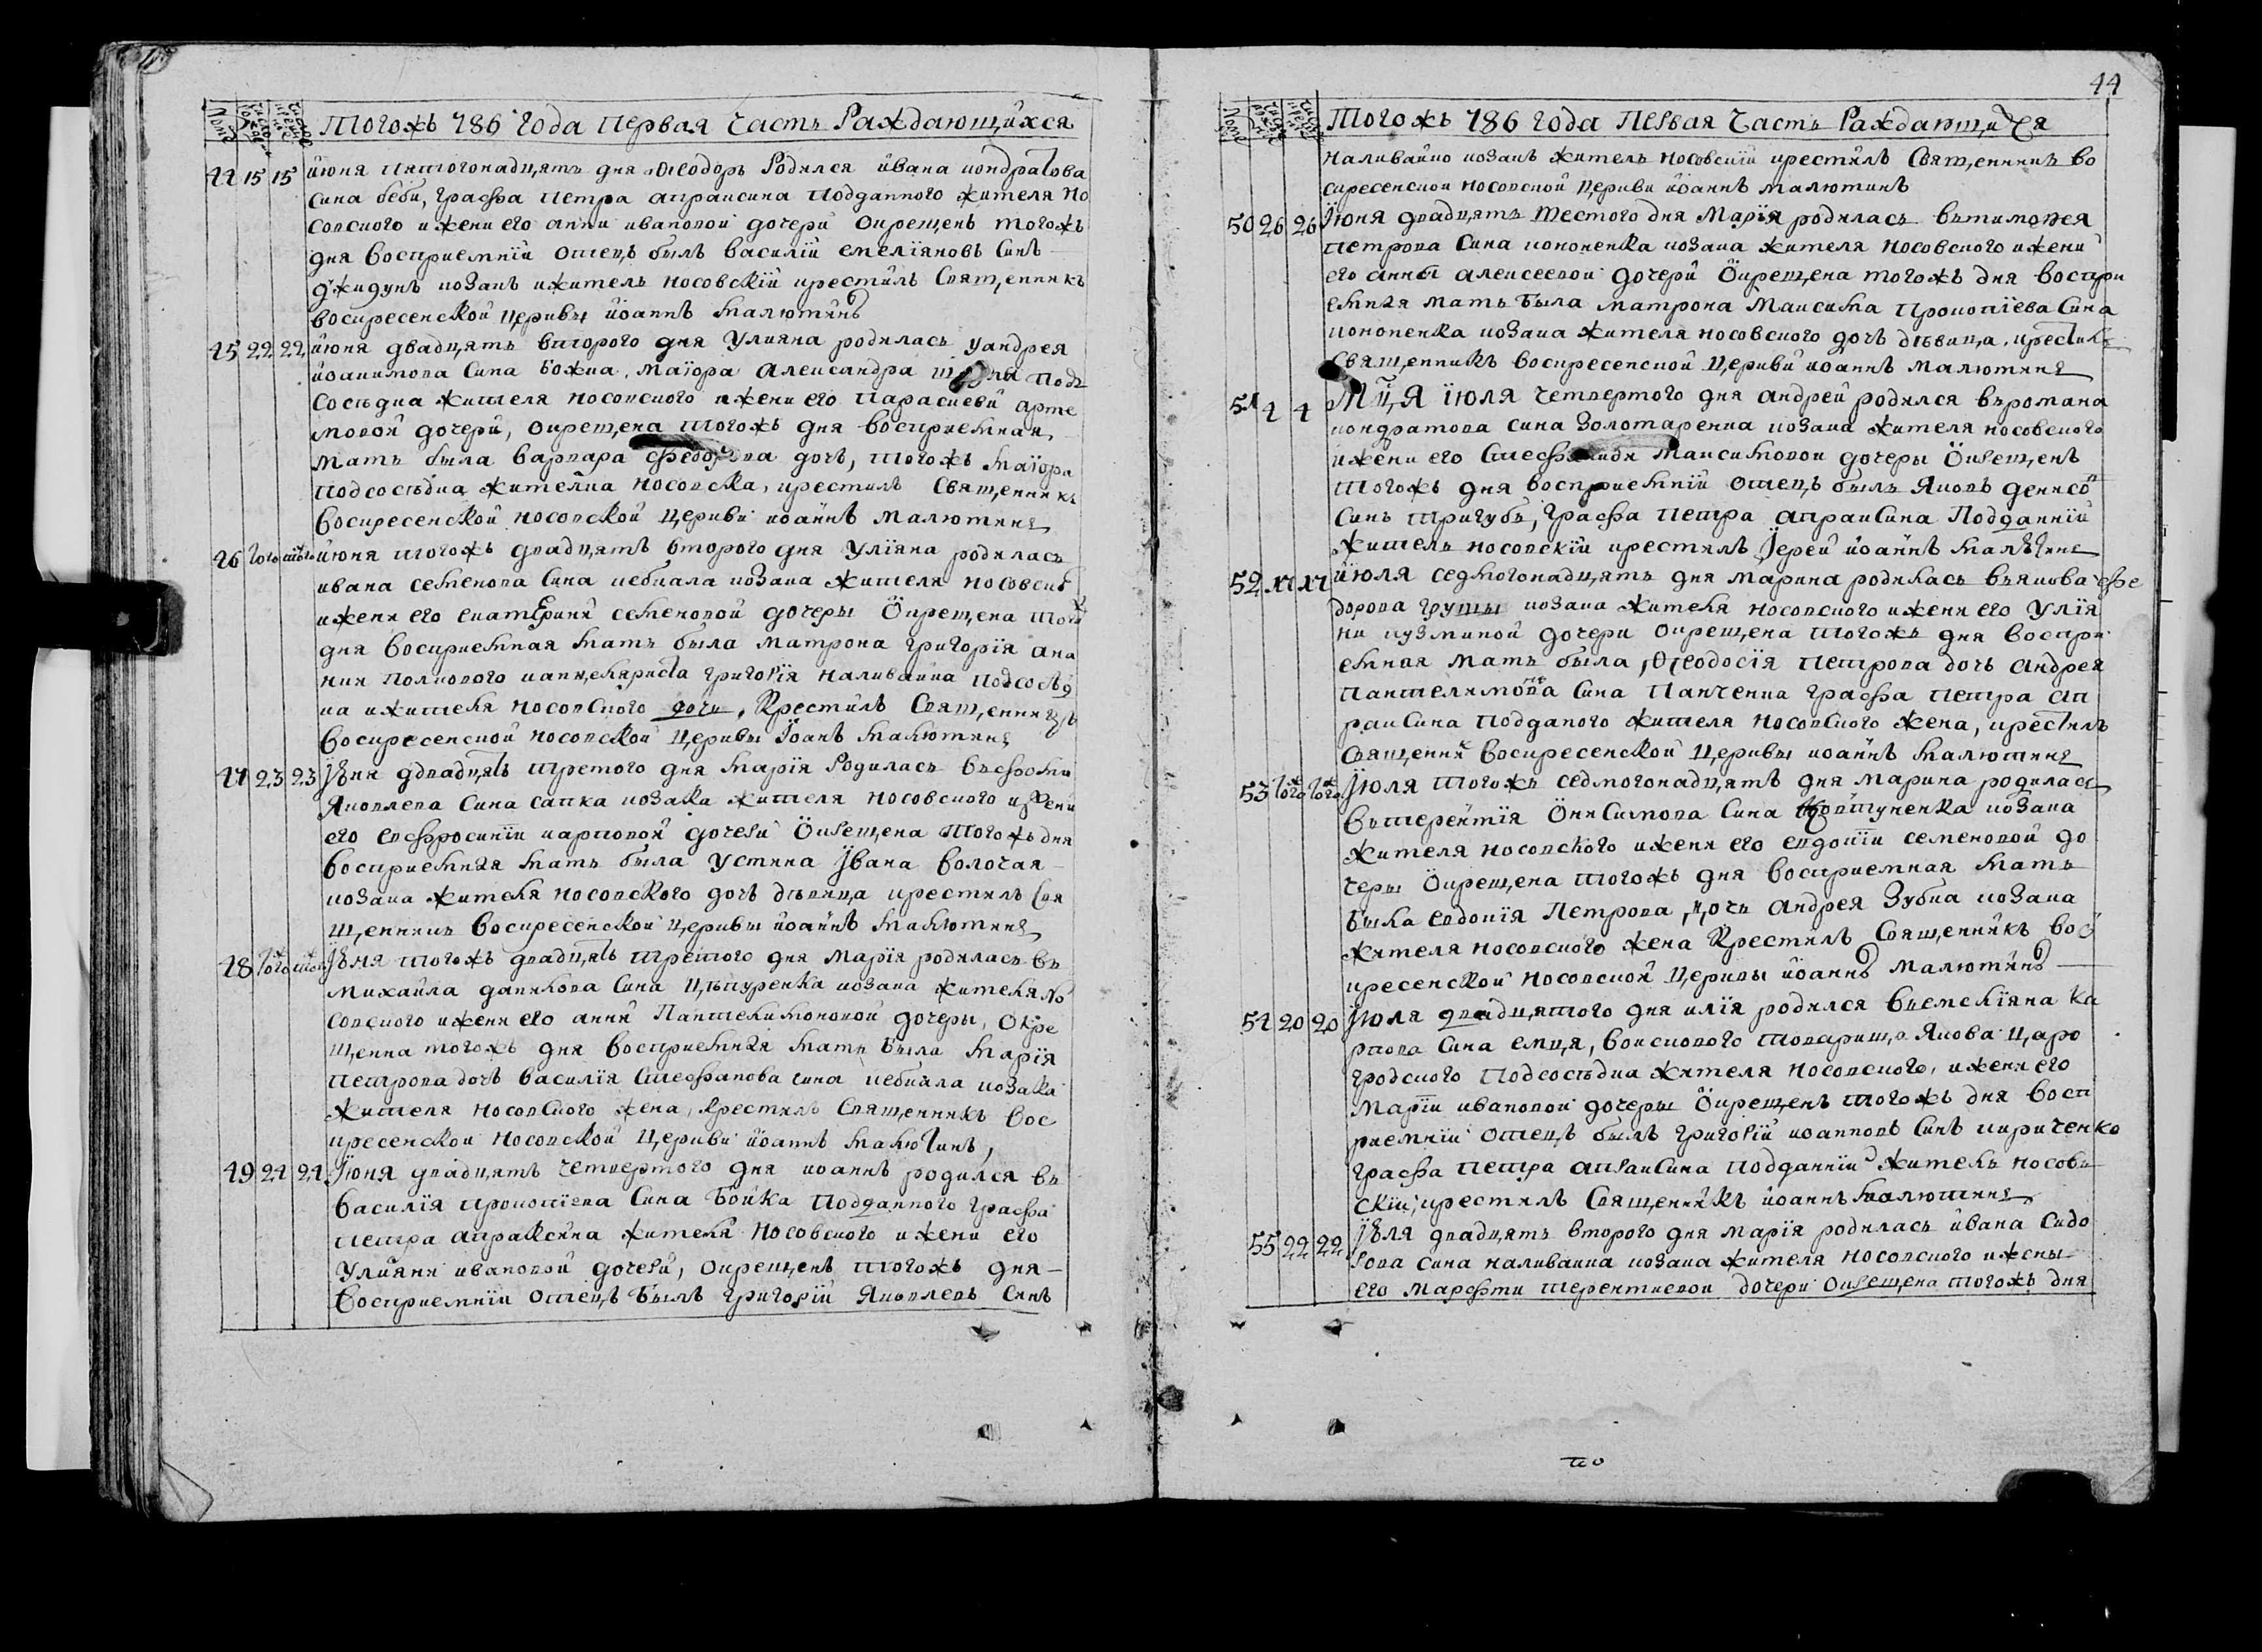 Тогожъ 786 года Первая часть Раждающихся
44 15 15 июня пятогонадцять дня Ѳеодоръ Родился ивана кондратова
сина беби, графа петра апраксина подданного жителя но
совского и жени его анни ивановой дочери окрещенъ тогожъ
дня восприемній отецъ былъ василій емеліяновъ синъ
джидунъ козакъ и житель носовскій крестилъ Священникъ
воскресенской церкви іоаннъ малютинъ
45 22 22 июня двадцять второго дня Улияна родилась у андрея
иоакимова Сина божка, маіора александра подъ
сосѣдка жителя носовского и жени его параскеви арте
мовой дочери, окрещена тогожъ дня восприемная
мать была варвара федорова дочь, тогожъ маіора
подсосѣдка жителка носовска, крестилъ Священникъ
воскресенской носовской церкви иоаннъ малютинъ
46 того того июня тогожъ двадцять второго дня Уліяна родилась
ивана семенова Сина цебкала козака жителя носовско
и жени его екатерини семеновой дочеры Окрещена тогожъ
дня восприемная мать была матрона григорія ана
ния полкового канцеляриста григорія наливайка подсосѣд
ка и жителя носовского дочь, Крестилъ Священникъ
воскресенской носовской церквы Іоанъ малютинъ
47 23 23 Іюня двадцять третого дня марія Родилась въ фоми
Яковлева Сина сапка козака жителя носовского и жени
его евфросиніи карповой дочери Окрещена того жъ дня
восприемная мать была устина Ивана волочая
козака жителя носовского дочь дѣвица крестилъ Свя
щенникъ воскресенской церквы иоаннъ малютинъ
48 того того Іюня тогожъ двадцять третого дня марія родилась въ
михайла данилова Сина цѣпуренка козака жителя но
совского и жени его анни Пантелимоновой дочеры, Окре
щенна тогожъ дня восприемная мать была марія
петрова дочь василія стефанова сина цебкала козака
жителя носовского жена, крестилъ Священникъ вос
кресенской носовской церкви иоаннъ малютинъ,
49 24 24 Июня двадцять четвертого дня иоаннъ родился въ
василія прокопіева Сина Бойка подданного графа
петра апраксина жителя носовского и жени его
Улияни ивановой дочери, окрещенъ тогожъ дня
восприемніи отецъ былъ григорій Яковлевъ Синъ
44
Тогожъ 786 года Первая Часть Раждающихся
наливайко козакъ житель носовскій крестилъ Священникъ во
скресенской носовской церкви иоаннъ малютинъ
50 26 26 Июня двадцять шестого дня Марія родилась въ тимофея
петрова Сина кононенка козака жителя носовского и жени
его анны алексеевой дочери Окрещена тогожъ дня воспри
емная мать была матрона максима прокопіева Сина
кононенка козака жителя носовского дочь дѣвица, крестилъ
Священникъ воскресенской церкви иоаннъ малютинъ
51 4 4 Мца іюля четвертого дня андрей родился въ романа
кондратова сина Золотаренка козака жителя носовского
и жени его Максимовой дочеры Окрещенъ
тогожъ дня восприемній отецъ былъ Яковъ денисо
Синъ тригубъ, графа петра апраксина Подданній
житель носовскій крестилъ Іерей иоаннъ малютинъ
52 17 17 июля седмогонадцять дня марина родилась въ якова фе
дорова груши козака жителя носовского и жени его Улія
ни кузминой дочери окрещена тогожъ дня воспри
емная мать была, Ѳеодосія петрова дочь андрея
пантелимонова Сина Панченка графа петра ап
раксина подданого жителя носовского жена, крестилъ
священникъ воскресенской церквы иоаннъ малютинъ
53 того того Июля тогожъ седмогонадцять дня марина родилась
въ терентія Онисимова Сина козака
жителя носовского и жени его евдокіи семеновой до
черы Окрещена тогожъ дня восприемная мать
была евдокія Петрова дочь андрея Зубка козака
жителя носовского жена Крестилъ Священникъ вос
кресенской носовской церквы иоаннъ малютинъ
54 20 20 Июля двадцятого дня илія родился въ емелїяна ка
рпова Сина емця, войскового товарища Якова царо
гродского подсосѣдка жителя носовского, и жени его
маріи ивановой дочеры Окрещенъ тогожъ дня восп
риемніи отецъ былъ григорій иоанновъ Синъ кириченко
графа петра апраксина подданніи житель носовъ
скій, крестилъ Священникъ иоаннъ малютинъ
55 22 22 Июля двадцять второго дня марія родилась ивана сидо
рова сина наливайка козака жителя носовского и жены
его марфи терентиевой дочери окрещена тогожъ дня